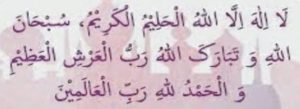 لَا إِلٰهَ إِلَّا اللهُ الْحَلِيْمُ الْكَرِيْمُ، سُبْحَانَ
اللهِ وَ تَبَارَكَ اللهُ رَبُّ الْعَرْشِ الْعَظِيْمِ
وَ الْحَمْدُ لِلهِ رَبِّ الْعَالَمِيْنَ